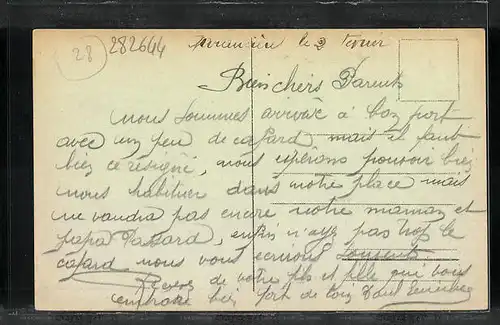 28 282644 le 2
Bien chers Parents
nous sommes arrivée à bon port
avec un peu de cafard mais il faut
bien ce résigné, nous espérons pouvoir bien
nous habituer dans notre place mais
ne vaudra pas encore notre maman et
papa enfin n'ayez pas trop le
cafard nous vous ecrirons souvent
de votre fils et fille qui vous
bien fort de loin Paul